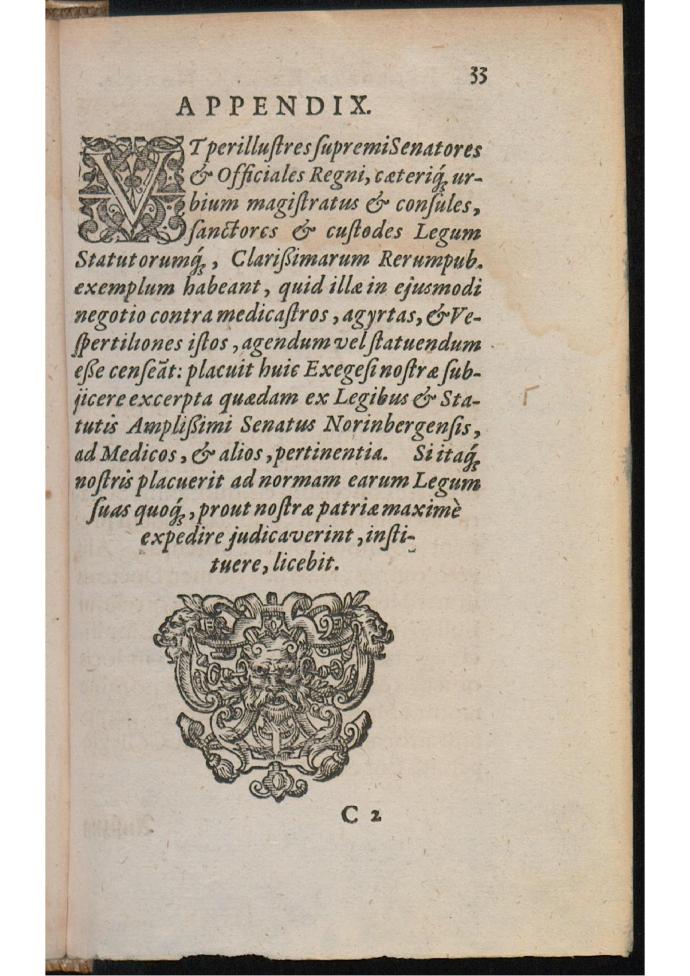 33
APPENDIX.
VT perillustres supremi Senatores
& Officiales Regni, cæteriq́ꝫ ur-
bium magistratus & consules,
sanctores & custodes Legum
Statutorumq́ꝫ, Clarißimarum Rerumpub.
exemplum habeant, quid illæ in ejusmodi
negotio contra medicastros, agyrtas, & Ve-
spertiliones istos, agendum vel statuendum
eße censeãt: placuit huic Exegesi nostræ sub-
jicere excerpta quædam ex Legibus & Sta-
tutis Amplißimi Senatus Norinbergensis,
ad Medicos, & alios, pertinentia. Si itaq́ꝫ
nostris placuerit ad normam earum Legum
suas quoq́ꝫ, prout nostræ patriæ maximè
expedire judicaverint, insti-
tuere, licebit.
C 2